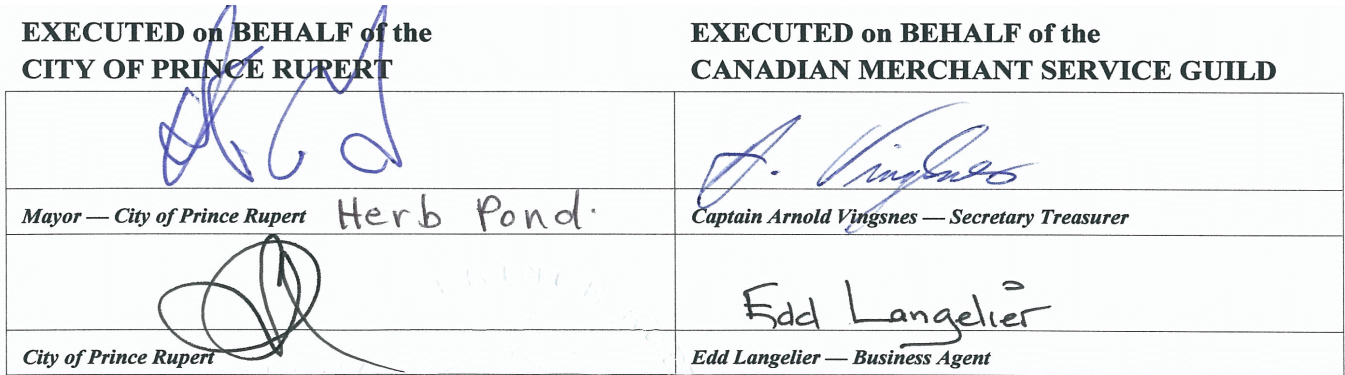 EXECUTED on BEHALF of the
CITY OF PRINCE RUPERT
Mayor — City of Prince Rupert Herb Pond.
City of Prince Rupert
EXECUTED on BEHALF of the
CANADIAN MERCHANT SERVICE GUILD
A. Vingsnes
Captain Arnold Vingsnes — Secretary Treasurer
Edd Langelier
Edd Langelier — Business Agent